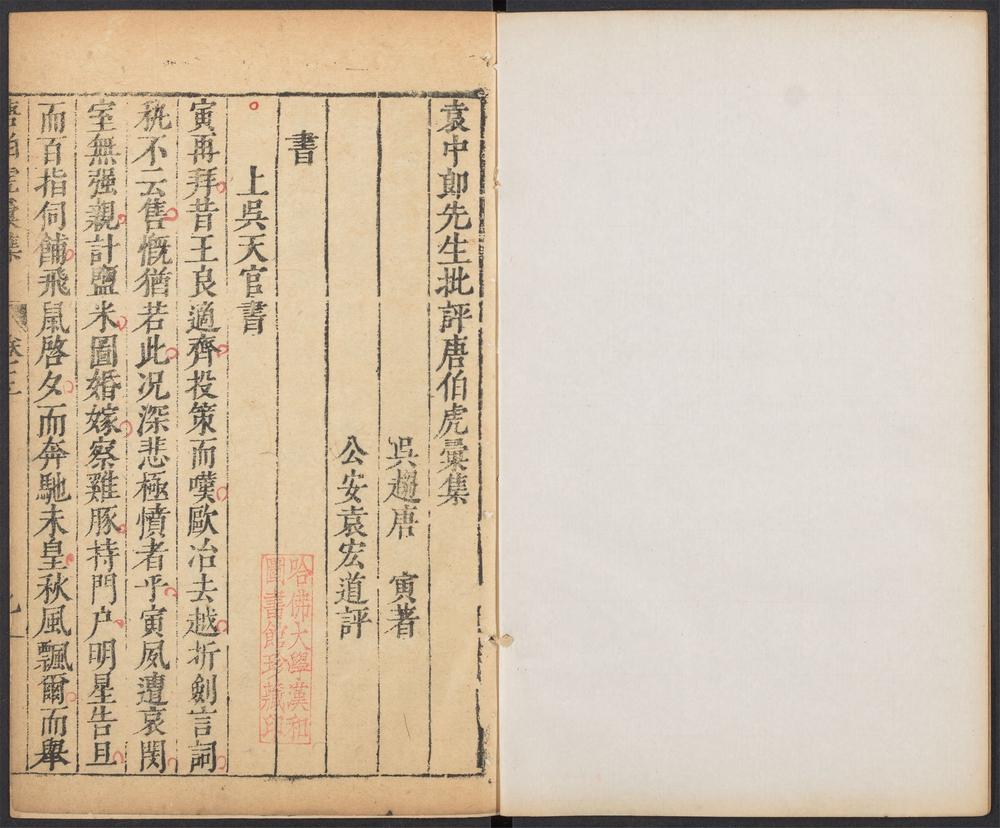 袁中郎先生批評唐伯虎彙集
吳趨唐　寅著
公安袁宏道評
書
上吳天官書
寅再拜昔王良適齊投策而嘆歐冶去越折劍言詞
秇不云售慨猶若此况深悲極憤者乎寅夙遭哀閔
室無强親計鹽米圖婚嫁察雞豚持門户明星告旦
而百指伺餔飛鼠啓夕而奔馳未皇秋風飄爾而舉
唐伯虎彙集
卷之三
哈佛大學漢和
圖書館珍藏印